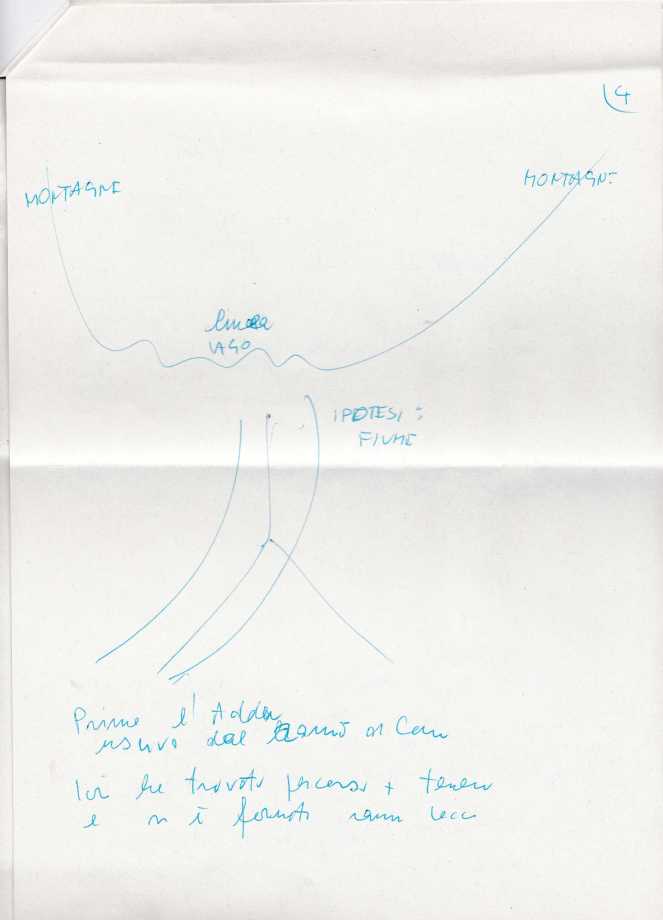 4
MONTAGNE
MONTAGNE
linea
LAGO
IPOTESI:
FIUME
Prima l'Adda
usciva dal ramo di Como
Poi ha trovato percorso + tenero
e si è formato ramo Lecco